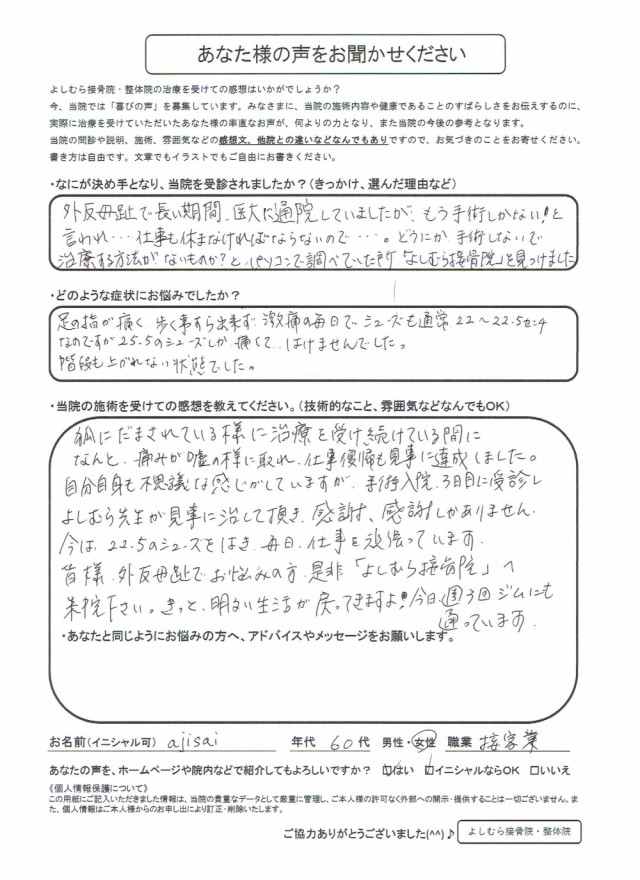 あなた様の声をお聞かせください
よしむら接骨院・整体院の治療を受けての感想はいかがでしょうか？
今、当院では「喜びの声」を募集しています。みなさまに、当院の施術内容や健康であることのすばらしさをお伝えするのに、
実際に治療を受けていただいたあなた様の率直なお声が、何よりの力となり、また当院の今後の参考となります。
当院の問診や説明、施術、雰囲気などの感想文、他院との違いなどなんでもありですので、お気づきのことをお寄せください。
書き方は自由です。文章でもイラストでもご自由にお書きください。
・なにが決め手となり、当院を受診されましたか？（きっかけ、選んだ理由など）
外反母趾で長い期間、医大に通院していましたが、もう手術しかない！と
言われ…仕事も休まなければならないので…。どうにか手術しないで
治療する方法がないものか？と、パソコンで調べていた所「よしむら接骨院」を見つけました
・どのような症状にお悩みでしたか？
足の指が痛く 歩く事すら出来ず、激痛の毎日で シューズも通常22～22.5センチ
なのですが25.5のシューズしか 痛くて、はけませんでした。
階段も上がれない状態でした。
・当院の施術を受けての感想を教えてください。（技術的なこと、雰囲気などなんでもOK）
狐にだまされている様に治療を受け続けている間に
なんと、痛みが嘘の様に取れ、仕事復帰も見事に達成しました。
自分自身も不思議な感じがしていますが、手術入院、3日目に受診し
よしむら先生が見事に治して頂き、感謝、感謝しかありません。
今は、22.5のシューズをはき、毎日、仕事を頑張っています。
皆様、外反母趾でお悩みの方、是非「よしむら接骨院」へ
来院下さい。きっと、明るい生活が戻ってきますよ！今日、週3回ジムにも
通っています。
・あなたと同じようにお悩みの方へ、アドバイスやメッセージをお願いします。
お名前（イニシャル可） ajisai 年代 60代 男性・女性 職業 接客業
あなたの声を、ホームページや院内などで紹介してもよろしいですか？ □はい □イニシャルならOK □いいえ
《個人情報保護について》
この用紙にご記入いただきました情報は、当院の貴重なデータとして厳重に管理し、ご本人様の許可なく外部への開示・提供することは一切ございません。ま
た、個人情報はご本人様からのお申し出により訂正・削除いたします。
ご協力ありがとうございました(^^)♪ よしむら接骨院・整体院